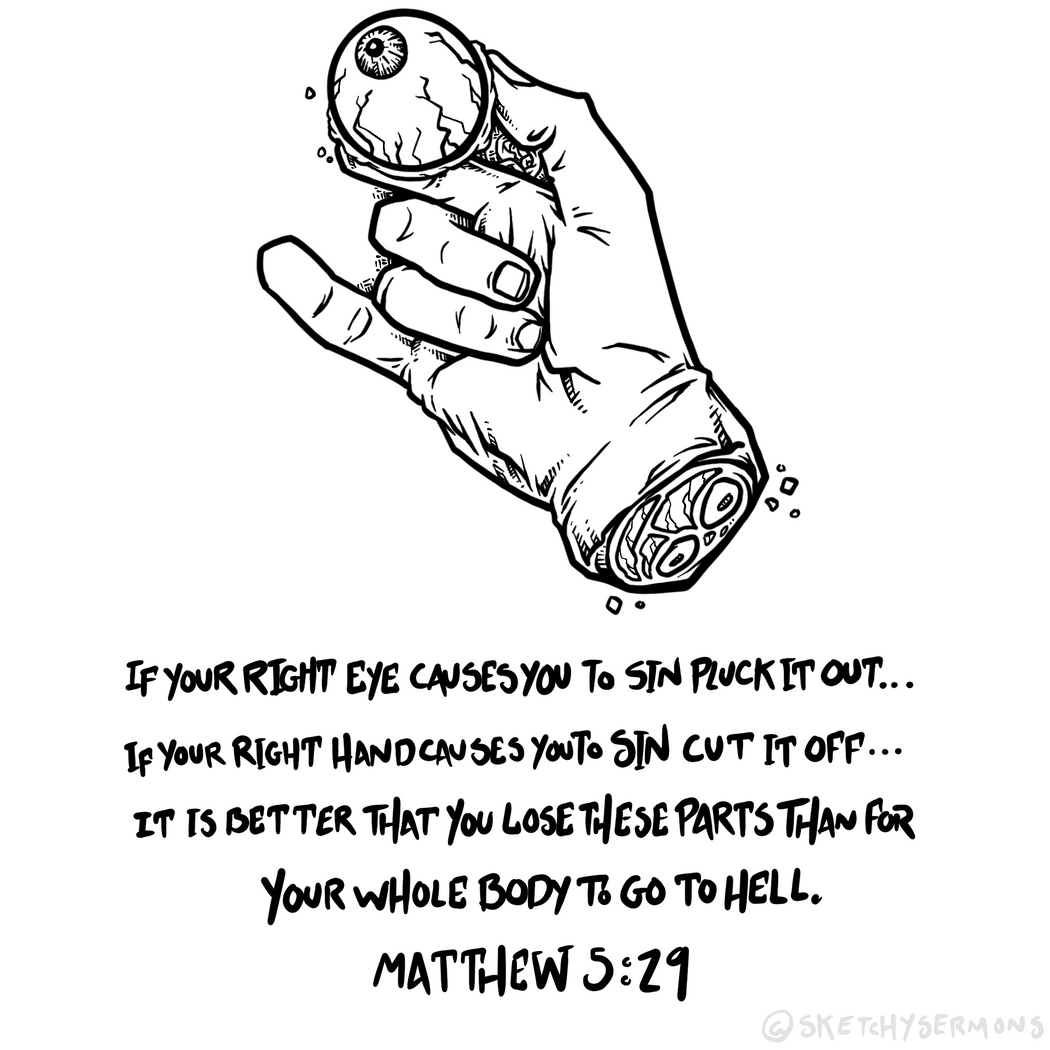 IF YOUR RIGHT EYE CAUSES YOU TO SIN PLUCK IT OUT...
IF YOUR RIGHT HAND CAUSES YOU TO SIN CUT IT OFF...
IT IS BETTER THAT YOU LOSE THESE PARTS THAN FOR
YOUR WHOLE BODY TO GO TO HELL.
MATTHEW 5:29
©SKETCHYSERMONS